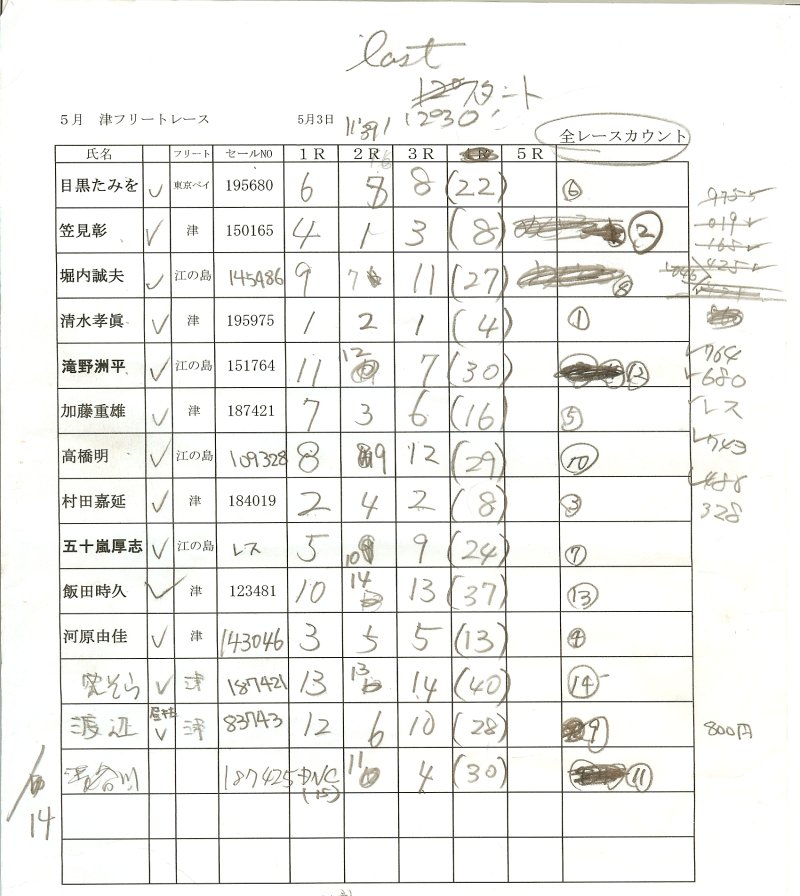 last
スタート
5月 津フリートレース 5月3日 11:39 1230 全レースカウント
氏名 フリート セールNO 1R 2R 3R 5R
目黒たみを ✓ 東京ベイ 195680 6 8 8 (22) ⑥
笠見彰 ✓ 津 150165 4 1 3 (8) ②
019✓
165✓
堀内誠夫 ✓ 江の島 145486 9 7 11 (27) ⑧
425✓
清水孝眞 ✓ 津 195975 1 2 1 (4) ①
滝野洲平 ✓ 江の島 151764 11 12 7 (30) ⑫
✓764
✓680
加藤重雄 ✓ 津 187421 7 3 6 (16) ⑤
✓レス
高橋明 ✓ 江の島 109328 8 9 12 (29) ⑩
✓743
✓488
村田嘉延 ✓ 津 184019 2 4 2 (8) ③
328
五十嵐厚志 ✓ 江の島 レス 5 10 9 (24) ⑦
飯田時久 ✓ 津 123481 10 14 13 (37) ⑬
河原由佳 ✓ 津 143046 3 5 5 (13) ④
そら ✓ 津 187421 13 13 14 (40) ⑭
渡辺 ✓ 津 83743 12 6 10 (28) 9 800円
谷川 187425 DNC (15) 11 4 (30) ⑪
14